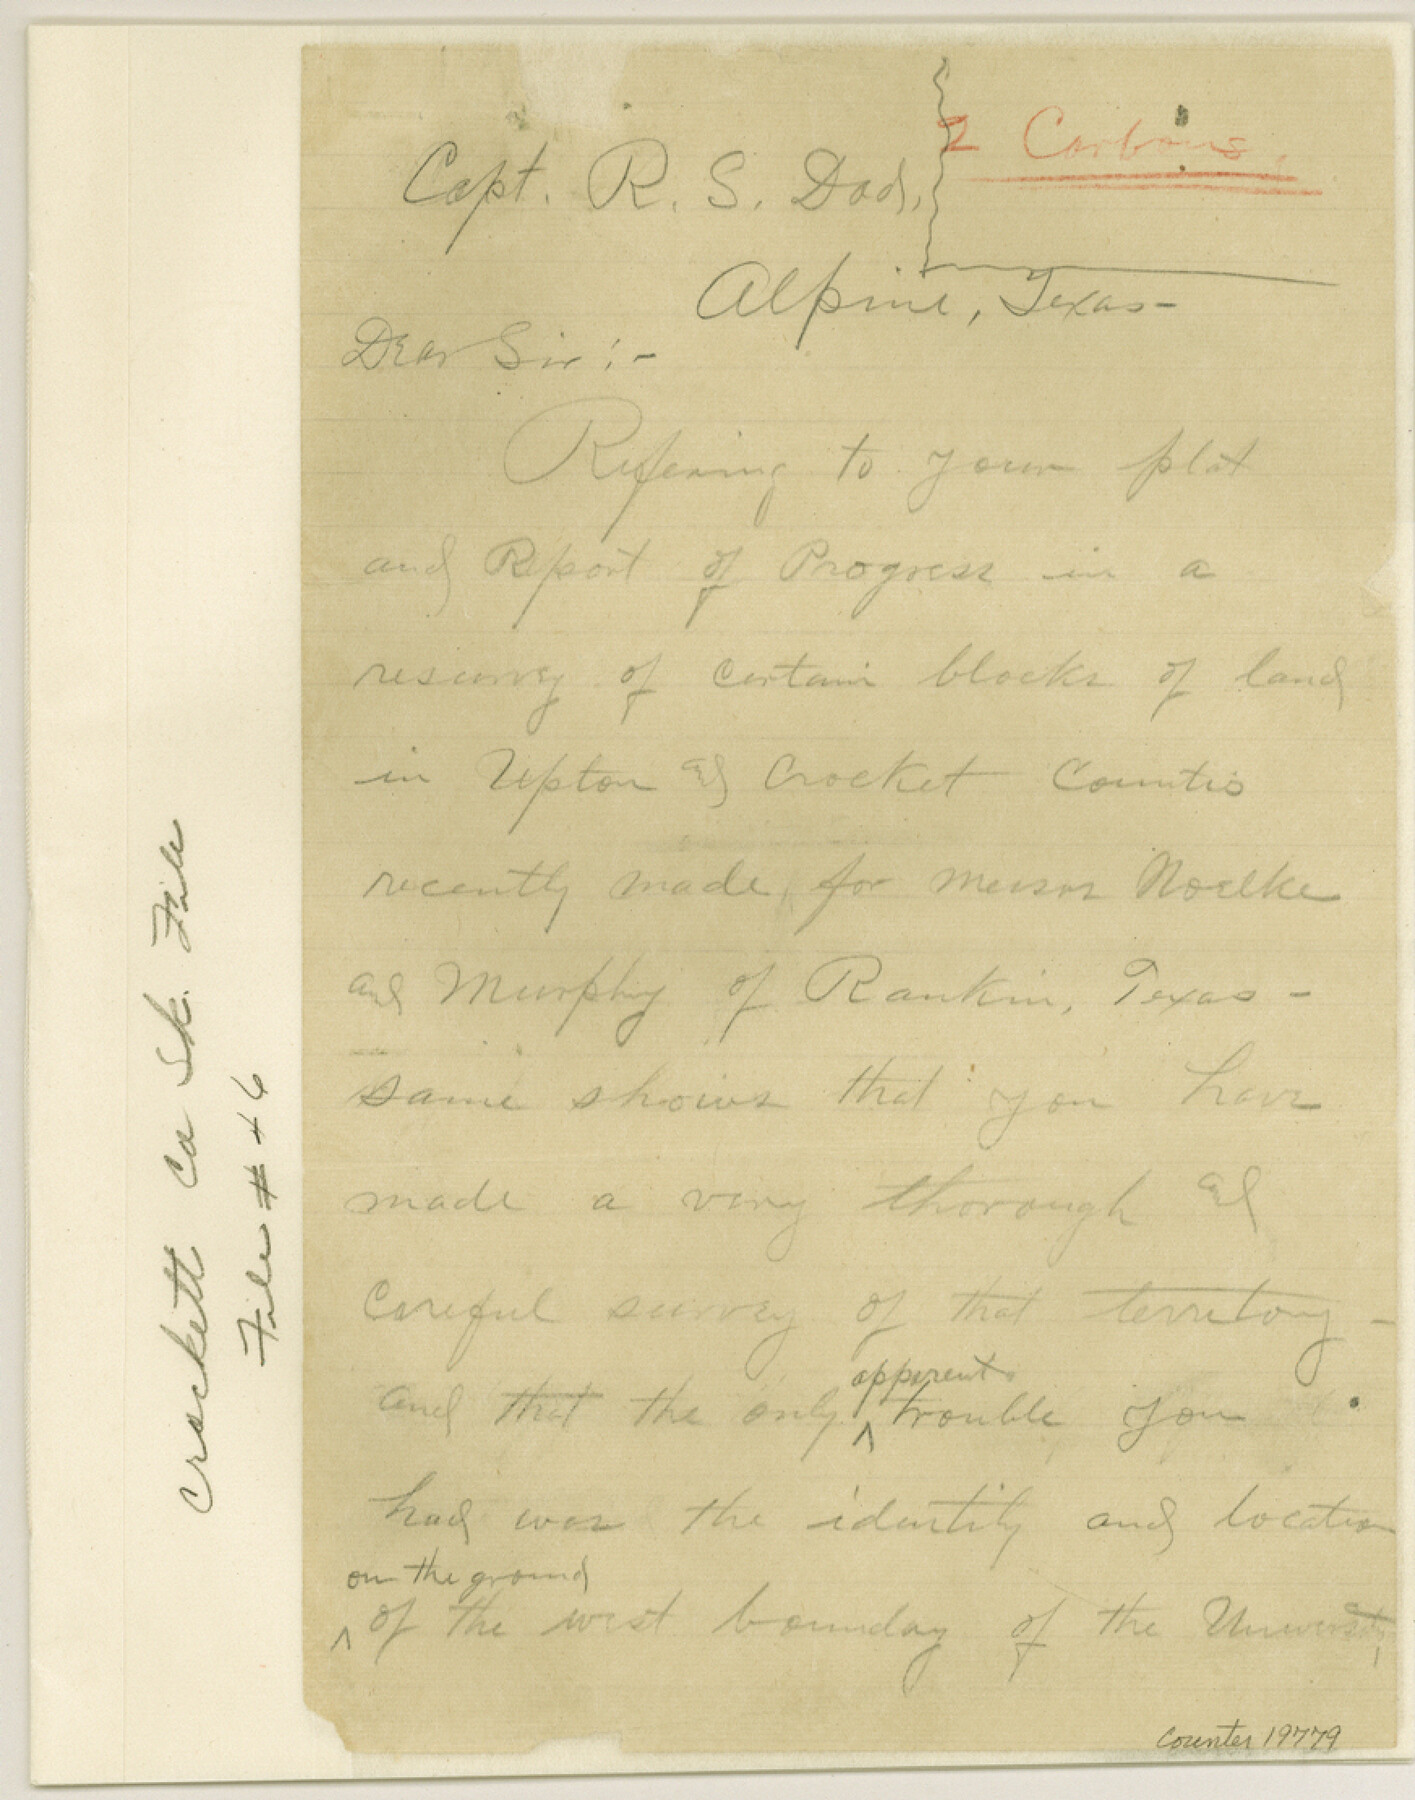 2 Carbons.
Capt. R. S. Dod,
Alpine, Texas-
Dear Sir:-
Refering to your plat
and Report of Progress in a
resurvey of certain blocks of land
in Upton and Crocket Counties
recently made, for messrs Noelke
and Murphy of Rankin, Texas-
same shows that you have
made a very thorough and
Careful survey of that territory-
apparent
and that the only ^ trouble you
had was the identity and location
on the ground
^ of the west bounday of the University
Counter 19779
Crockett Co Sk. File
File # 46